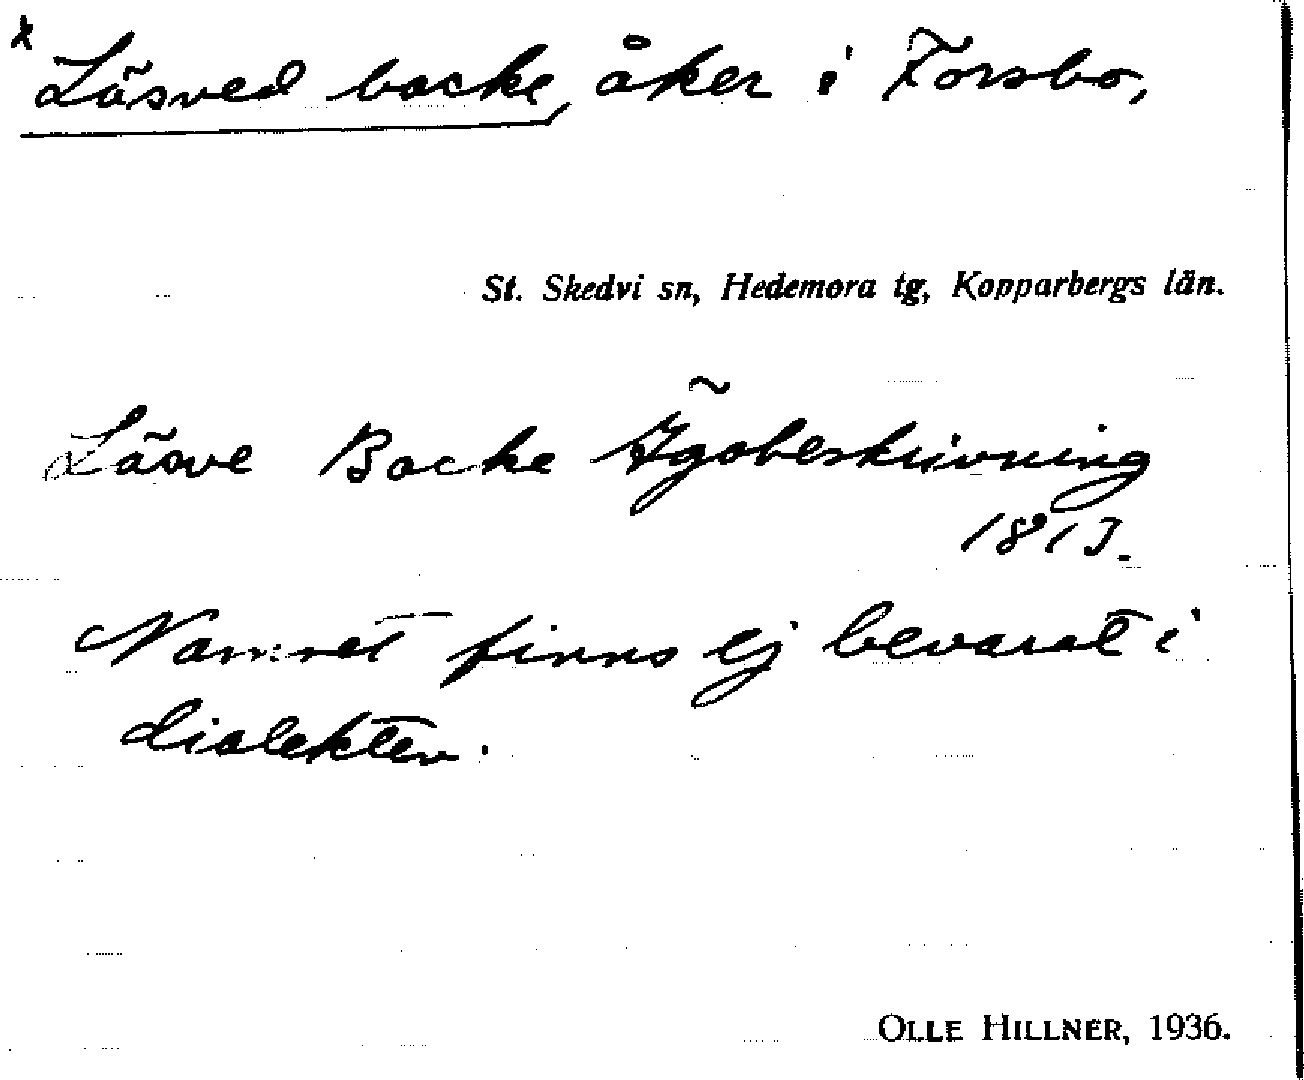 x Läsved backe, åker i Forsbo,
St. Skedvi sn, Hedemora tg, Kopparbergs län.
Läsve Backe Ägobeskrivning
1813.
Namnet finns ej bevarat i
dialekten.
OLLE HILLNER, 1936.